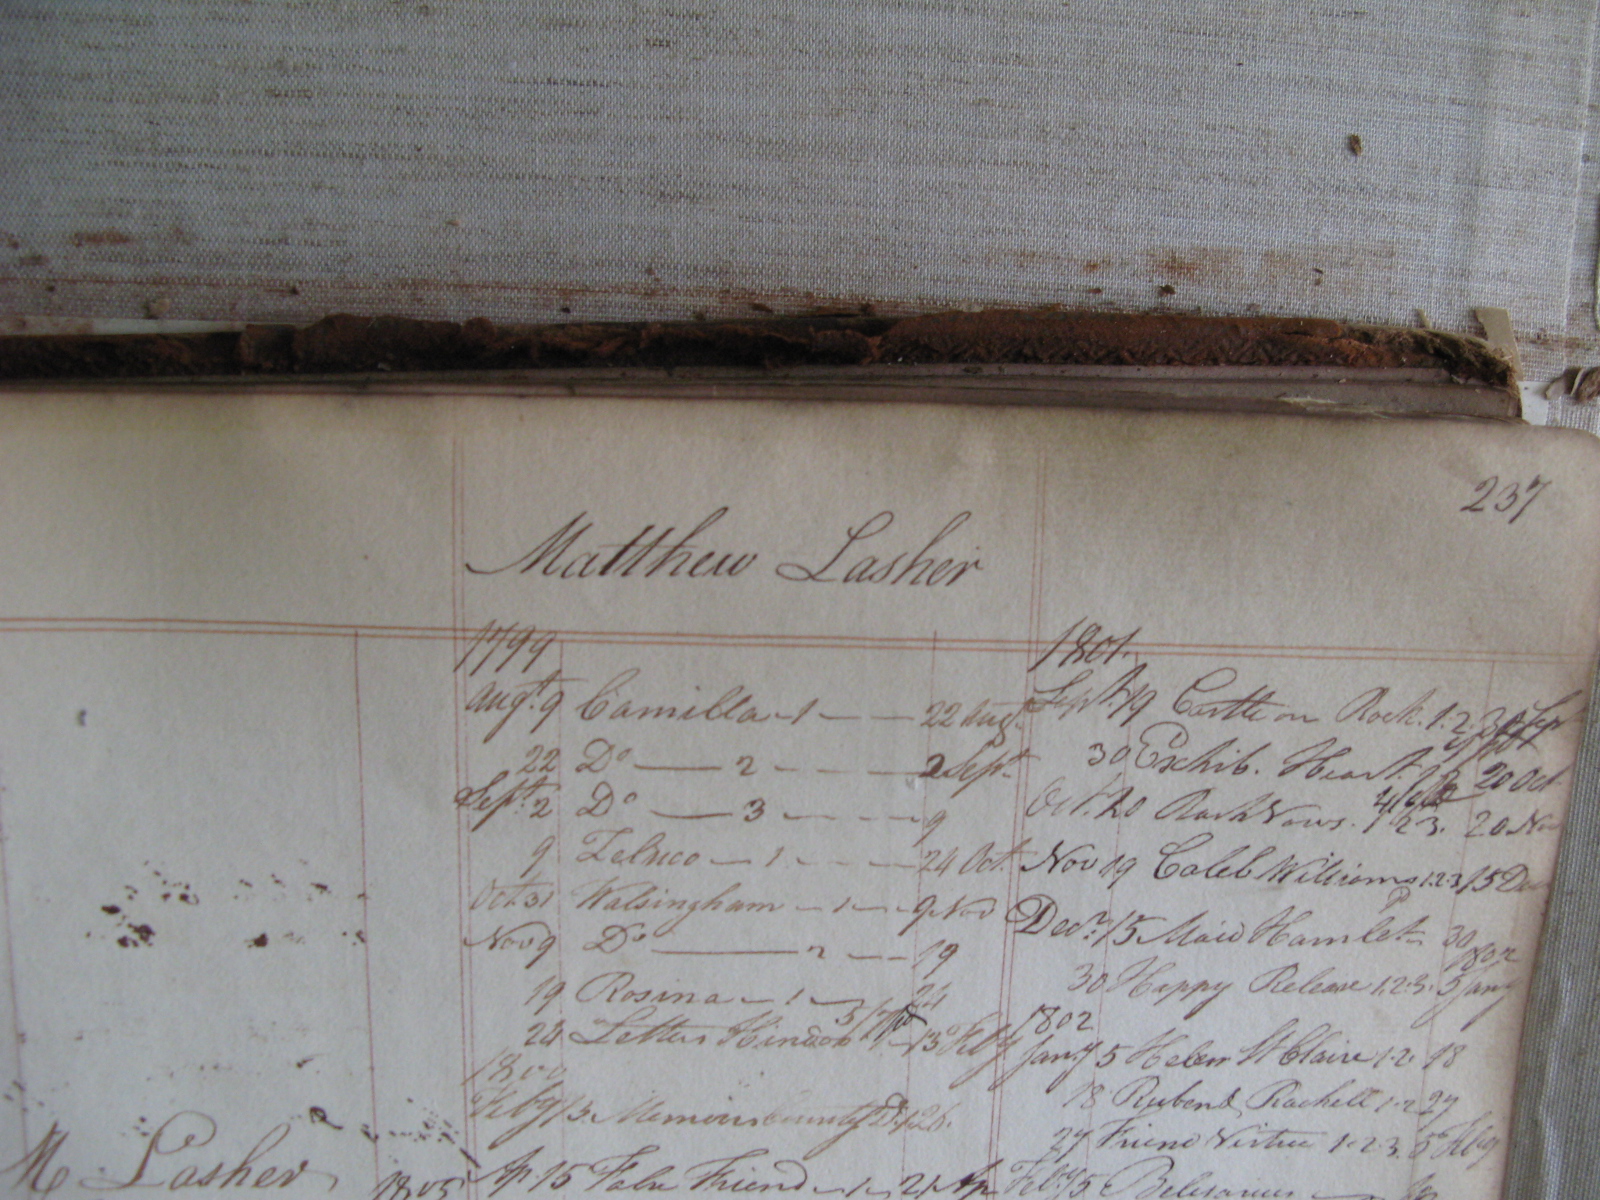 237
Matthew Lasher
1799
Augt. 9 Camilla - 1 - - - 22 Augt
22 Do - 2 - - - 2 Sept
Sept. 2 Do - 3 - - - 9
9 Zeluco - 1 - - - 24 Oct
Oct 31 Walsingham - 1 - - 9 Nov
Nov 9 Do - 2 - - 19
19 Rosina - 1 - 24
24 Letters Hindoo 13 Feby
1800
Feby 13 Memoirs County D 1. 26.
Ap 15 False Friend - 1 - 21 Ap
1801.
Sept. 19 Castle on Rock. 1.2. 30 Sep
30 Exhib. Heart. 20 Oct
Oct. 20 Rash Vows. 1 2 3. 20 Nov
Nov 19 Caleb Williams 1.2.3 15 Dec
Decr. 15 Maid Hamlet 30
1802
30 Happy Release 1.2.3. 5 Jany
1802
Jany 5 Helen St Claire 1.2. 18
18 Ruben & Rachell 1.2 27
27 Friend Virtue 1.2.3. 5 Feby
Feby 5 Belisarius
M Lasher
1805